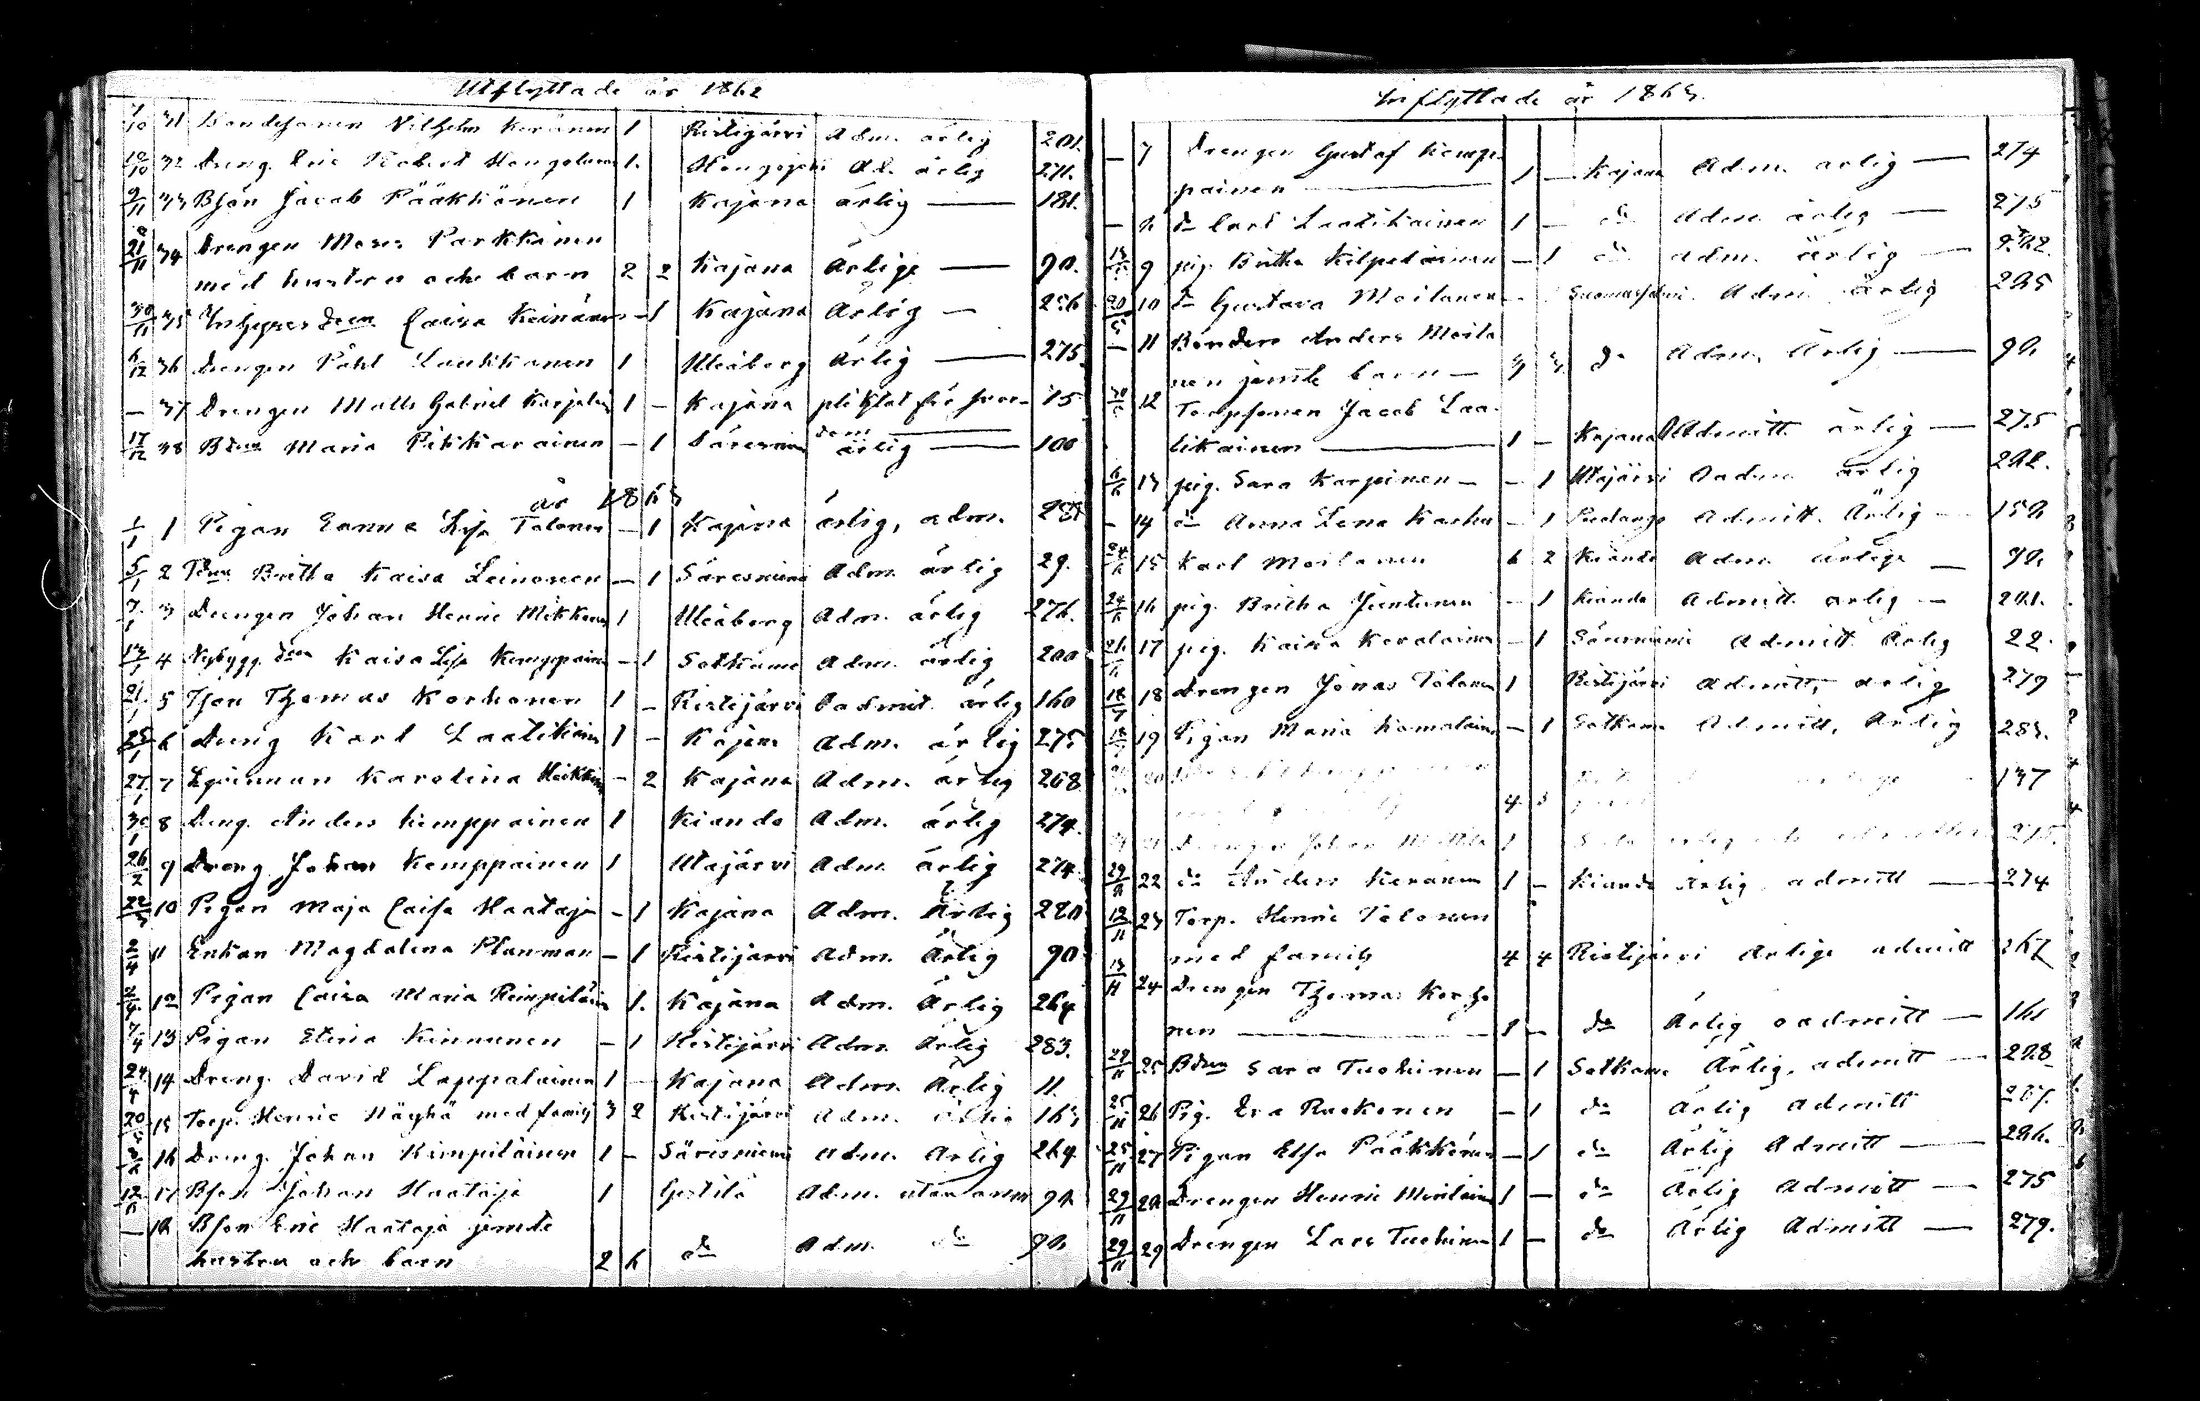 Utflyttade år 1862
1/10 31 Bondesonen Vilhelm Keränen 1 Ristijärvi Adm. ärlig 201.
10/10 32 Dreng. Eric Robert Hongolainen 1. Ad. ärlig 271.
9/11 33 Bson Jacob Pääkkönen 1 Kajana ärlig — 181.
21/11 34 Drengen Moses Parkkinen
med hustru och barn 2 2 Kajana Ärlige — 90.
30/11 35 Caisa Keinänen — 1 Kajana Ärlig — 256
6/12 36 Drengen Påhl Laukkanen 1 Uleåborg Ärlig — 275
— 37 Drengen Matts Gabriel 1 — Kajana pliktat för 75
17/12 38 Bdren Maria Pikkarainen — 1 Säresniemi ärlig — 100
år 1863
1/1 1 Pigan Lisa Tolonen — 1 Kajana ärlig, adm.
5/1 2 Britta Kaisa Leinonen — 1 Säresniemi Adm. ärlig 29.
7/1 3 Drengen Johan Henric Mikkonen 1 Uleåborg Adm. ärlig 276.
17/1 4 Nybygg. dren Kaisa Lisa Kemppainen — 1 Sotkamo Adm. ärlig 200
21/1 5 Tson Thomas Korhonen 1 — Ristijärvi Oadmit. ärlig 160
25/1 6 Dreng Karl Laatikainen 1 — Kajana Adm. ärlig 275
27/1 7 Karolina Heikkinen — 2 Kajana Adm. ärlig 268
30/1 8 Dreng. Anders Kemppainen 1 Kianda Adm. ärlig 274.
26/2 9 Dreng Johan Kemppainen 1 Utajärvi Adm. ärlig 274.
22/3 10 Pigan Maja Caisa Haataja — 1 Kajana Adm. Ärlig 280
2/4 11 Enkan Magdalena Planman — 1 Ristijärvi Adm. Ärlig 90
2/4 12 Pigan Caisa Maria Kimpiläinen 1. Kajana Adm. Ärlig 264
7/4 13 Pigan Stina Kinnunen — 1 Ristijärvi Adm. Ärlig 283.
24/4 14 Dreng. David Lappalainen 1 — Kajana Adm. Ärlig 11.
20/5 15 Torp. Henric Häyhä med familj 3 2 Ristijärvi Adm. ärlig 163
16 Dreng. Johan Kimpiläinen 1 — Säresniemi Adm. Ärlig 264
12/6 17 Bson Johan Haataja 1 Adm. utan anm 98
— 18 Bson Eric Haataja jemte
hustru och barn 2 6 do Adm. do 98
Inflyttade år 1863.
— 7 Drengen Gustaf Kemp-
painen — 1 — Kajana Adm. ärlig — 274
— 8 do Carl Laatikainen 1 — do Adm. ärlig — 275
9 pig. Britha Kilpeläinen — 1 do adm. ärlig —
20/5 10 do Gustava Moilanen — Adm. ärlig 285
— 11 Bonden Anders Moila-
nen jemte barn — 3 3 do Adm. Ärlig — 98
12 Torpsonen Jacob Laa-
tikainen — 1 — Kajana Oadmitt. ärlig — 275
6/6 13 pig. Sara Karpinen — — 1 Utajärvi Oadm. ärlig 292.
— 14 do Anna Lena Karhu — 1 Pudasjärvi Admitt. Ärlig — 158
15 Karl Moilanen 6 2 Kianda Adm. ärlige — 98
24/6 16 pig. Britha Juntunen — 1 Kianda Admitt. ärlig — 281.
17 pig. Kaisa Keralainen — 1 Säresniemi Admitt. Ärlig 22.
18/7 18 Drengen Jonas Tolonen 1 Ristijärvi Admitt, ärlig 279
19 Pigan Maria Komulainen — 1 Sotkamo Admitt, Ärlig 283.
4 5 137
Drengen Johan 1 275.
22 do Anders Keränen 1 — Kianda Ärlig admitt — 274
12/11 23 Torp. Henric Tolonen
med familj 4 4 Ristijärvi Ärlige admitt 267
13/11 24 Drengen Thomas Korho-
nen — 1 — do Ärlig oadmitt — 161
25 Bdren Sara Tuohinen — 1 Sotkamo Ärlig, admitt — 298
25/11 26 Pig. Eva Ruokonen — 1 do Ärlig Admitt 287.
25/11 27 Pigan Elsa Pääkkönen — 1 do Ärlig Admitt — 286.
29/11 28 Drengen Henric 1 — do Ärlig Admitt — 275
29/11 29 Drengen Lars Tuohinen 1 — do Ärlig Admitt — 279.